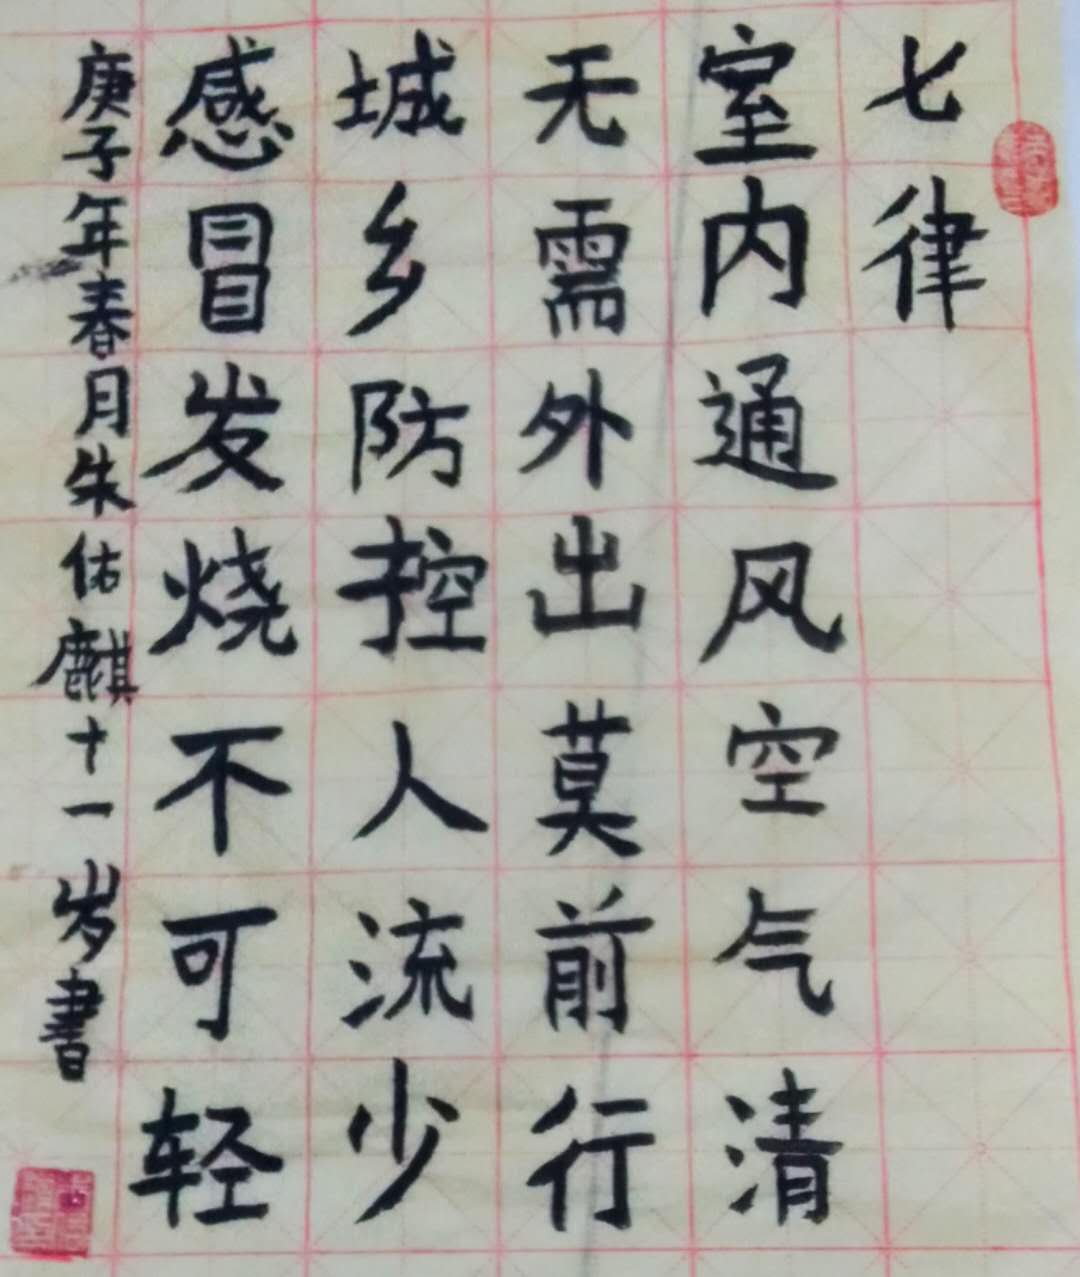 七律
室内通风空气清
无需外出莫前行
城乡防控人流少
感冒发烧不可轻
庚子年春月朱佑麒十一岁書